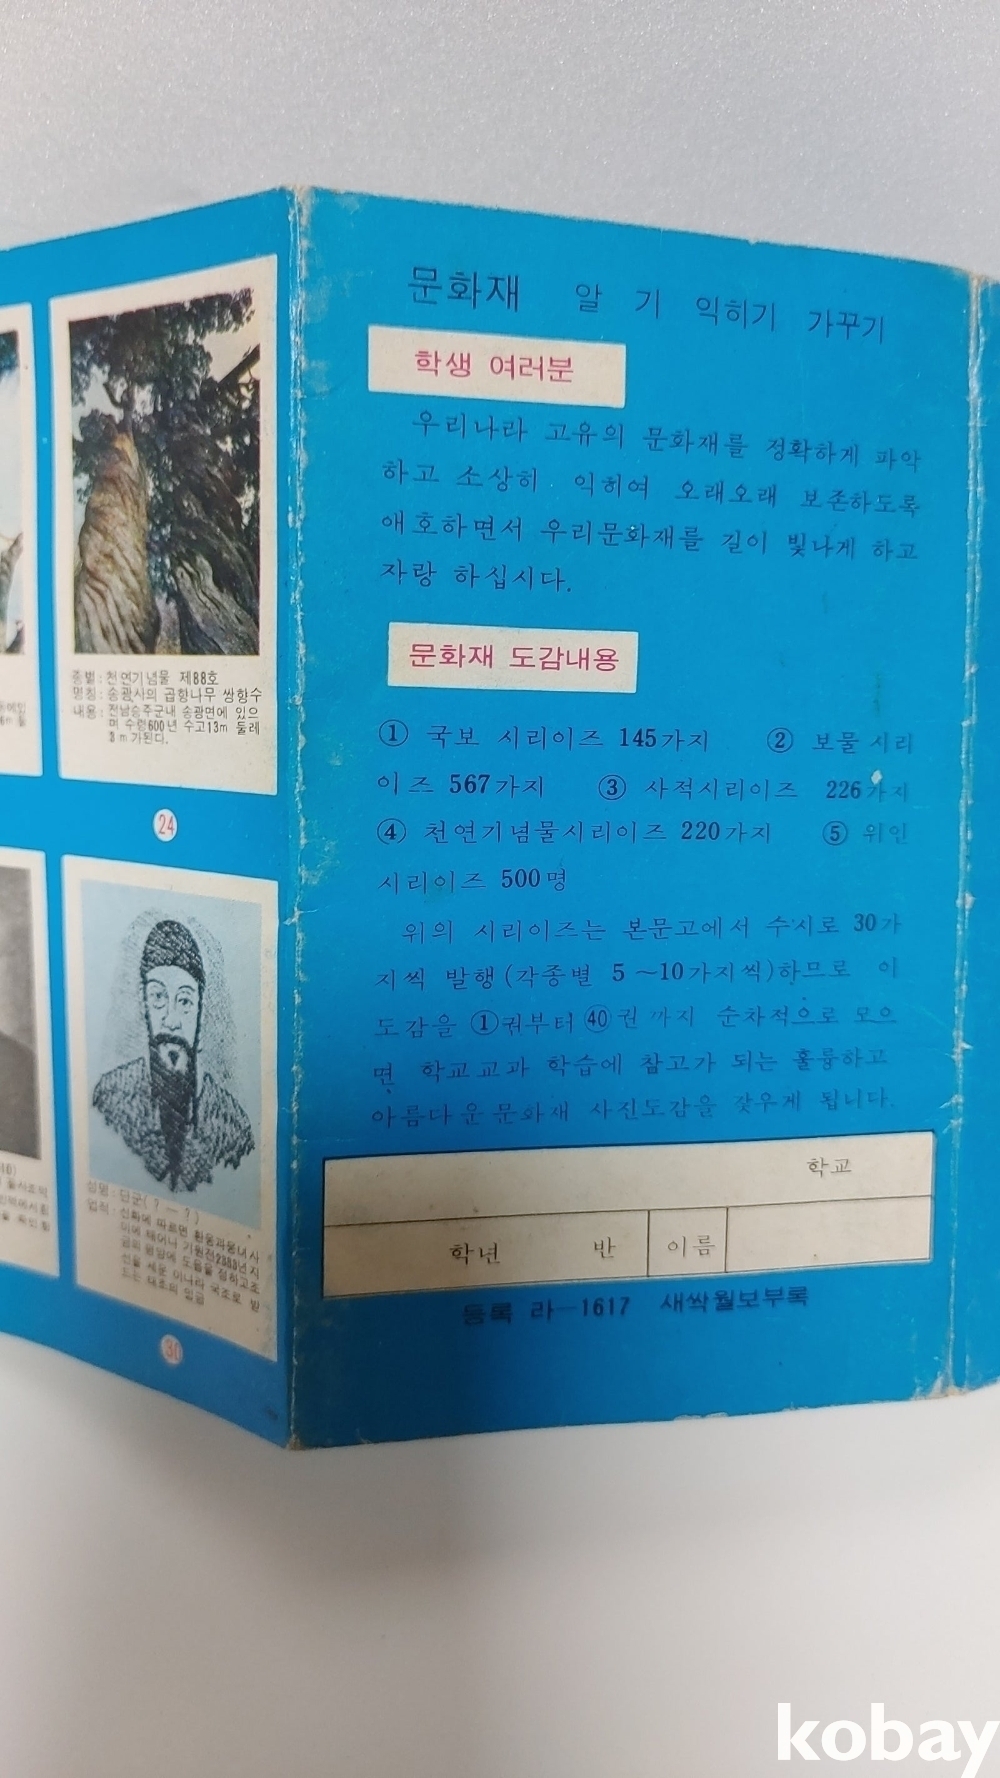 문화재 알 기 익히기 가꾸기
학생 여러분
우리나라 고유의 문화재를 정확하게 파악
하고 소상히 익히여 오래오래 보존하도록
애호하면서 우리문화재를 길이 빛나게 하고
자랑 하십시다.
문화재 도감내용
① 국보 시리이즈 145가지 ② 보물 시리
이즈 567가지 ③ 사적시리이즈 226가지
④ 천연기념물시리이즈 220가지 ⑤ 위인
시리이즈 500명
위의 시리이즈는 본문고에서 수시로 30가
지씩 발행(각종별 5~10가지씩)하므로 이
도감을 ①권부터 ㊵권 까지 순차적으로 모으
면 학교교과 학습에 참고가 되는 훌륭하고
아름다운문화재 사진도감을 갖우게 됩니다.
학교
학년 반 이름
등록 라-1617 새싹월보부록
종별: 천연기념물 제88호
명칭: 송광사의 곱향나무 쌍향수
내용: 전남승주군내 송광면에 있으
며 수령600년 수고13m 둘레
3m가된다.
24
성명: 단군(?-?)
업적: 신화에 따르면 환웅과웅녀사
이에 태어나 기원전2333년지
금의 평양에 도읍을 정하고조
선을 세운 이나라 국조로 받
드는 태초의 임금
30
kobay